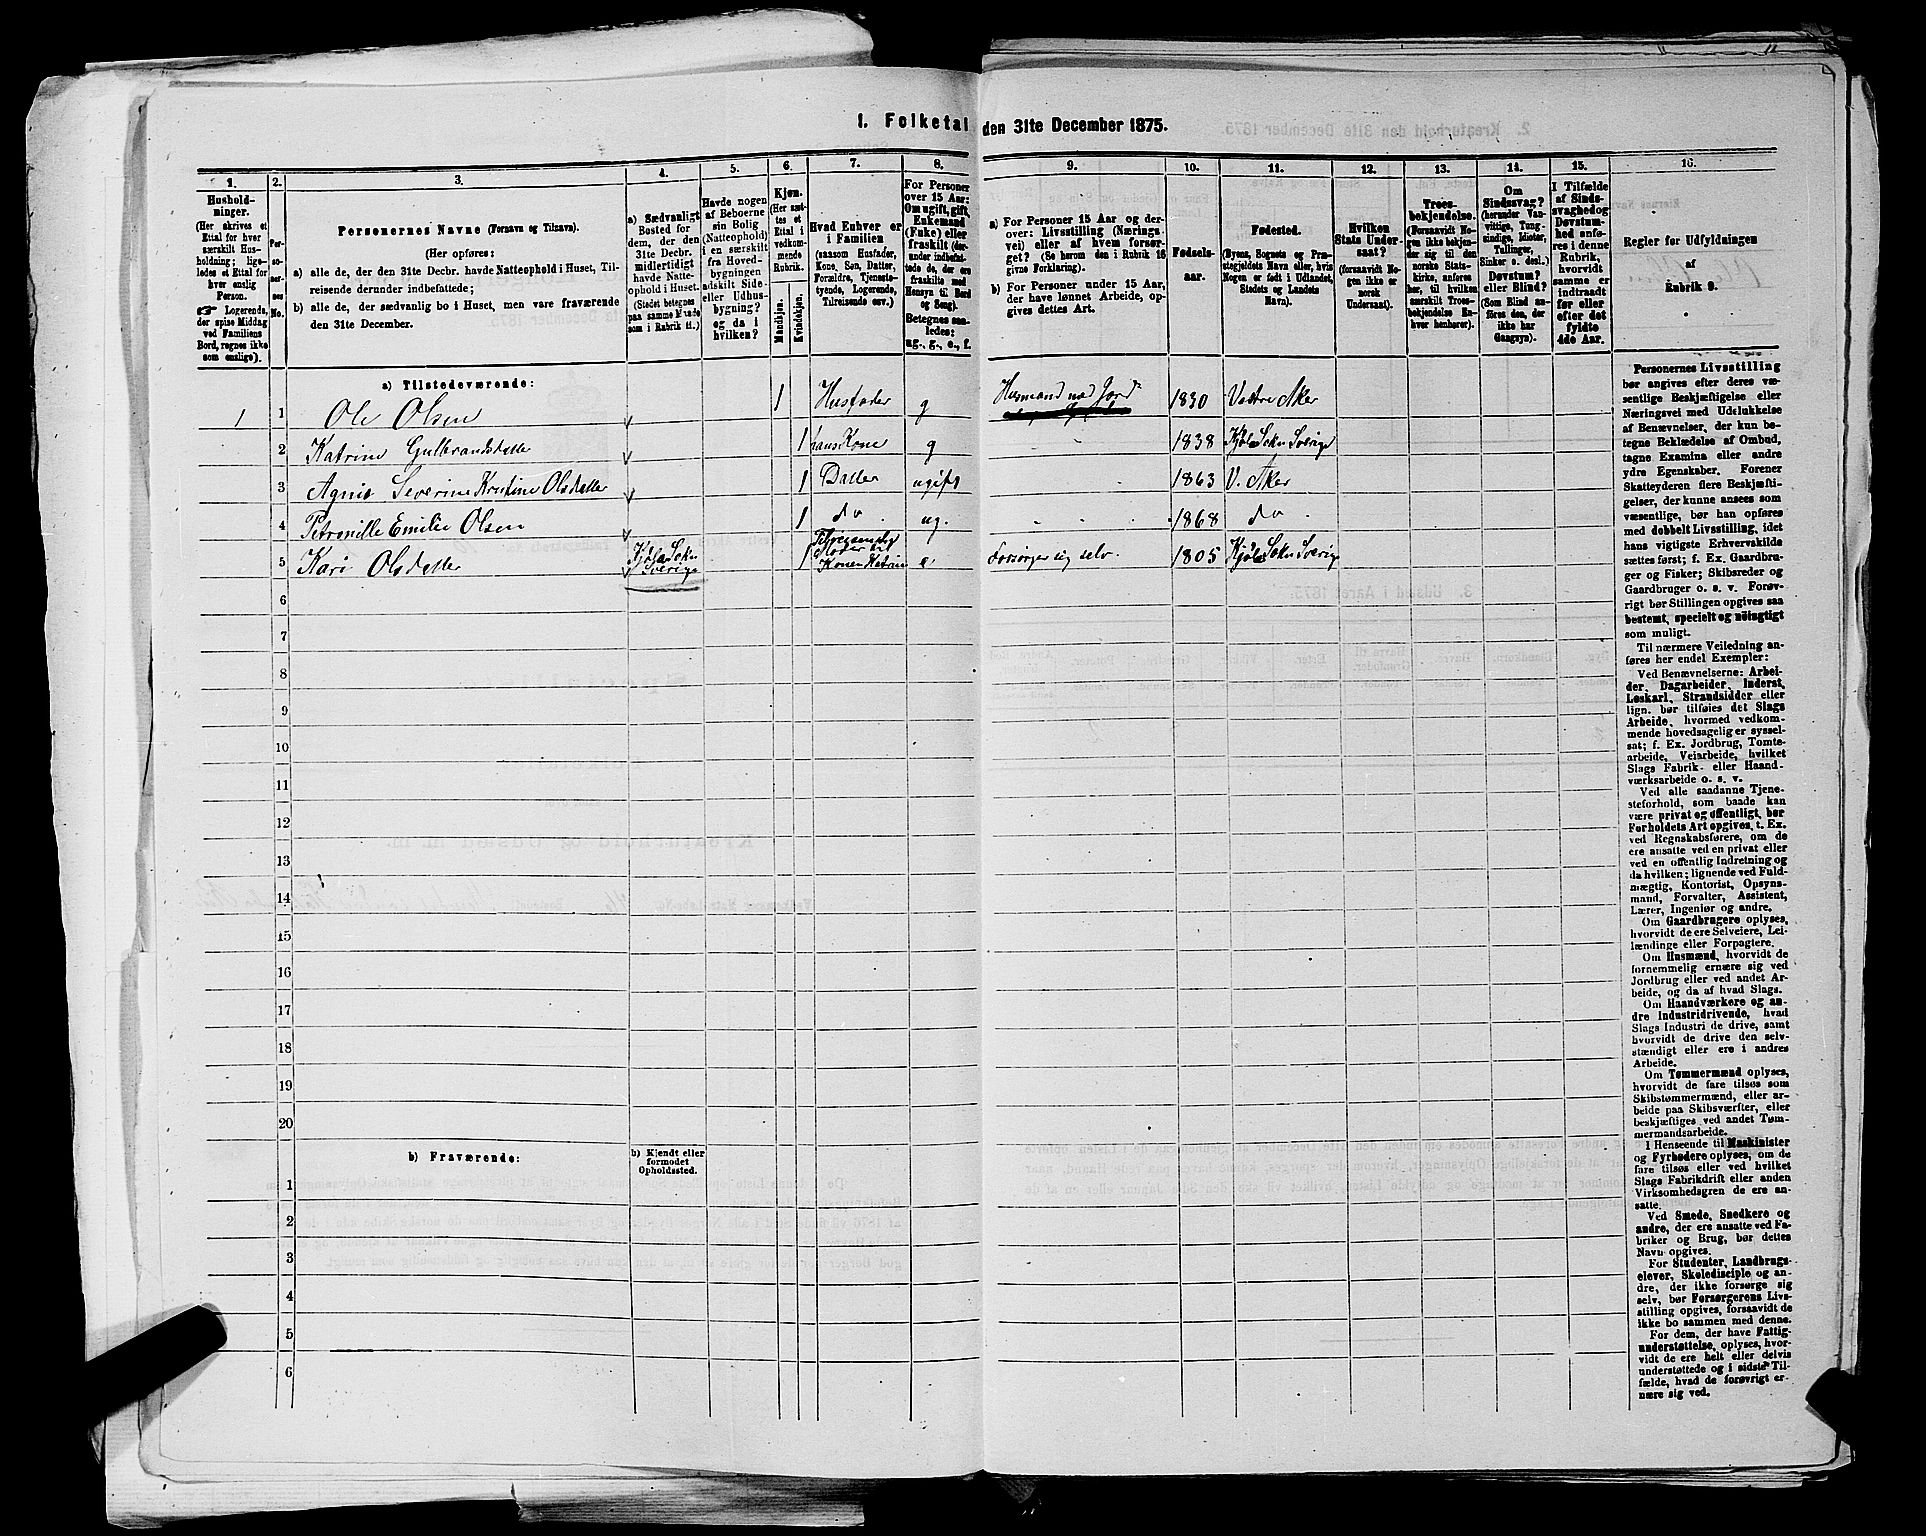 1. Folketal den 31te December 1875.
1.
2.
3.
4.
5.
6.
7.
8.
9.
10.
11.
12.
13.
14.
15.
16.
Hushold-
ninger.
(Her skrives et
Ettal for hver
særskilt Hus-
holdning; lige-
ledes et Ettal for
hver enslig
Person.
☞ Logerende,
der spise Middag
ved Familiens
Bord, regnes ikke
som enslige).
Per-
so-
ner-
nes
No.
Personernes Navne (Fornavn og Tilnavn).
(Her opføres:
a) alle de, der den 31te Decbr. havde Natteophold i Huset, Til-
reisende derunder indbefattede;
b) alle de, der sædvanlig bo i Huset, men vare fraværende
den 31te December.
a) Sædvanligt
Bosted for
dem, der den
31te Decbr.
midlertidigt
havde Natte-
ophold i Huset.
(Stedet betegnes
paa samme Maade
som i Rubrik 11.)
Havde nogen
af Beboerne
sin Bolig
(Natteophold)
i en særskilt
fra Hoved-
bygningen
adskilt Side-
eller Udhus-
bygning?
og da i
hvilken?
Kjøn.
(Her sæt-
tes et
Ettal i
vedkom-
mende
Rubrik.
Mandkjøn.
Kvindekjøn.
Hvad Enhver er
i Familien
(saasom Husfader,
Kone, Søn, Datter,
Forældre, Tjeneste-
tyende, Logerende,
Tilreisende osv.)
For Personer
over 15 Aar:
Om ugift, gift,
Enkemand
(Enke) eller
fraskilt (der-
under indbefat-
tede de, der ere
fraskilte med
Hensyn til Bord
og Seng).
Betegnes saa-
ledes:
ug., g., e., f.
a) For Personer 15 Aar og der-
over: Livsstilling (Nærings-
vei) eller af hvem forsør-
get? (Se herom den i Rubrik 16
givne Forklaring).
b) For Personer under 15 Aar,
der have lønnet Arbeide, op-
gives dettes Art.
Fødsels-
aar.
Fødested.
(Byens, Sognets eller Præ-
stegjeldets Navn eller, hvis
Nogen er født i Udlandet,
Stedets og Landets
Navn).
Hvilken
Stats Under-
saat?
(forsaavidt No-
gen ikke er
norsk
Undersaat).
Troes-
bekjendelse.
(Forsaavidt No-
gen ikke bekjen-
der sig til den
norske Stats-
kirke, anføres
her, til hvilken
særskilt Troes-
bekjendelse En-
hver henhører).
Om
Sindssvag?
(herunder Van-
vittige, Tung-
sindige, Idioter,
Tullinger,
Sinker o. desl.)
Døvstum?
eller Blind?
(Som Blind an-
føres den, der
ikke har
Gangsyn).
I Tilfælde
af Sinds-
svaghed og
Døvstum-
hed anfø-
res i denne
Rubrik,
hvorvidt
samme er
indtraadt
før eller
efter det
fyldte
4de Aar.
Regler for Udfyldningen
af
Rubrik 9.
a) Tilstedeværende:
1 1 Ole Olsen 1 Husfader g Husmand med Jord 1830 Vestre Aker
2 Katrine Gulbrandsdatter 1 hans Kone g 1838 Kjøla Sokn Sverige
3 Agnes Severine Kristine Olsdatter 1 Datter ugift 1863 V. Aker
4 Petronille Emilie Olsen 1 do ug. 1868 do
5 Kari Olsdatter Kjøla Sokn Sverige 1 Tilreisende Moder til Konen Katrine e Forsørger sig selv 1805 Kjøla Sokn Sverige
6
7
8
9
10
11
12
13
14
15
16
17
18
19
20
b) Fraværende:
b) Kjendt eller
formodet
Opholdssted.
1
2
3
4
5
6
Personernes Livsstilling
bør angives efter deres væ-
sentlige Beskjæftigelse eller
Næringsvei med Udelukkelse
af Benævnelser, der kun be-
tegne Beklædelse af Ombud,
tagne Examina eller andre
ydre Egenskaber. Forener
Skatteyderen flere Beskjæfti-
gelser, der kunne ansees som
væsentlige, bør han opføres
med dobbelt Livsstilling, idet
hans vigtigste Erhvervskilde
sættes først; f. Ex. Gaardbru-
ger og Fisker; Skibsreder og
Gaardbruger o. s. v. Forøv-
rigt bør Stillingen opgives saa
bestemt, specielt og nöiagtigt
som muligt.
Til nærmere Veiledning an-
føres her endel Exempler:
Ved Benævnelserne: Arbei-
der, Dagarbeider, Inderst,
Løskarl, Strandsidder eller
lign. bør tilføies det Slags
Arbeide, hvormed vedkom-
mende hovedsagelig er syssel-
sat; f. Ex. Jordbrug, Tomte-
arbeide, Veiarbeide, hvilket
Slags Fabrik- eller Haand-
værksarbeide o. s. v.
Ved alle saadanne Tjene-
steforhold, som baade kan
være privat og offentligt, bør
Forholdets Art opgives, t. Ex.
ved Regnskabsførere, om de
ere ansatte ved en privat eller
ved en offentlig Indretning og
da hvilken; lignende ved Fuld-
mægtig, Kontorist, Opsyns-
mand, Forvalter, Assistent,
Lærer, Ingeniør og andre.
Om Gaardbrugere oplyses,
hvorvidt de ere Selveiere, Lei-
lændinge eller Forpagtere.
Om Husmænd, hvorvidt de
fornemmelig ernære sig ved
Jordbrug eller ved andet Ar-
beide, og da af hvad Slags.
Om Haandværkere og an-
dre industridrivende, hvad
Slags Industri de drive, samt
hvorvidt de drive den selv-
stændigt eller ere i andres
Arbeide.
Om Tømmermænd oplyses,
hvorvidt de fare tilsøs som
Skibstømmermænd, eller ar-
beide paa Skibsværfter, eller
beskjæftiges ved andet Tøm-
mermandsarbeide.
I Henseende til Maskinister
og Fyrbødere oplyses, om de
fare tilsøs eller ved hvilket
Slags Fabrikdrift eller anden
Virksomhedsgren de ere an-
satte.
Ved Smede, Snedkere og
andre, der ere ansatte ved Fa-
briker og Brug, bør dettes
Navn opgives.
For Studenter, Landbrugs-
elever, Skoledisciple og an-
dre, der ikke forsørge sig
selv, bør Forsørgerens Livs-
stilling opgives, forsaavidt de
ikke bo sammen med denne.
For dem, der have Fattig-
understøttelse, oplyses, hvor-
vidt de ere helt eller delvis
understøttede og i sidste Til-
fælde, hvad de forøvrigt er-
nære sig ved.